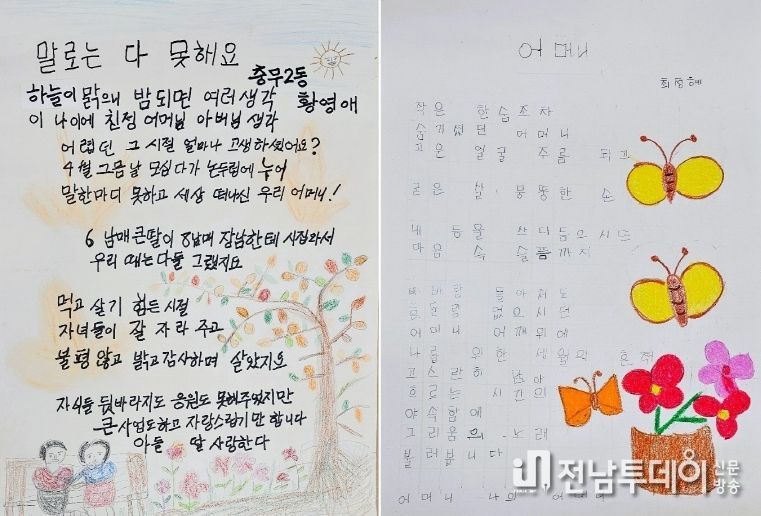 말로는 다 못해요
충무2동
황영애
하늘이 맑으니 밤되면 여러생각
이 나이에 친정 어머님 아버님 생각
어렵던 그 시절 얼마나 고생하셨어요?
4월 그믐날 모심다가 논두렁에 누어
말한마디 못하고 세상 떠나신 우리 어머니!
6남매 큰딸이 8남매 장남한테 시집와서
우리 때는 다들 그랬지요
먹고 살기 힘든 시절
자녀들이 잘 자라 주고
불평 않고 밝고 감사하며 살았지요
자식들 뒷바라지도 응원도 못해주었지만
큰사업도하고 자랑스럽기만 합니다
아들 딸 사랑한다
어머니
최정혜
작은 한숨조차
숨기셨던 어머니
고운 얼굴 주름 되고
굳은 살 뭉뚱한 손
내 등을 쓰다듬으시면
마음 속 슬픔까지
비바람 몰아쳐도
흔들림 없으시던
어머니 어깨위에
나를 위한 세월의 흔적
고스란히 남아
흐르는 시간의
야속함에
그리움의 노래
불러봅니다
어머니 나의 어머니
전남투데이 신문 방송